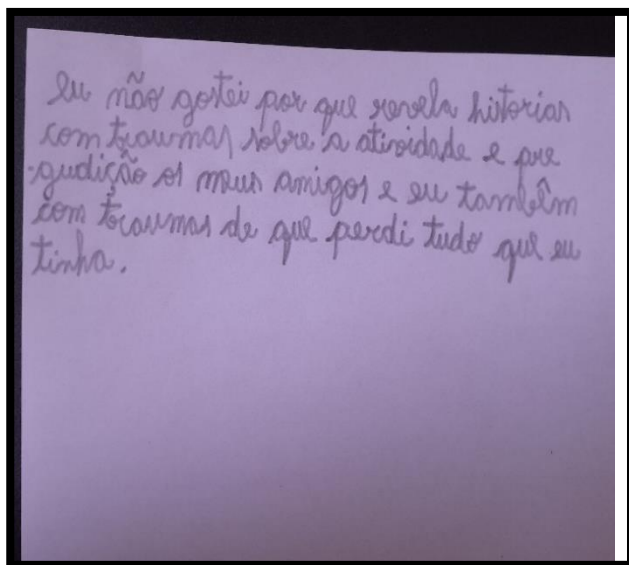 eu não gostei por que revela historias
com traumas sobre a atividade e pre
gudição os meus amigos e eu também
com traumas de que perdi tudo que eu
tinha.